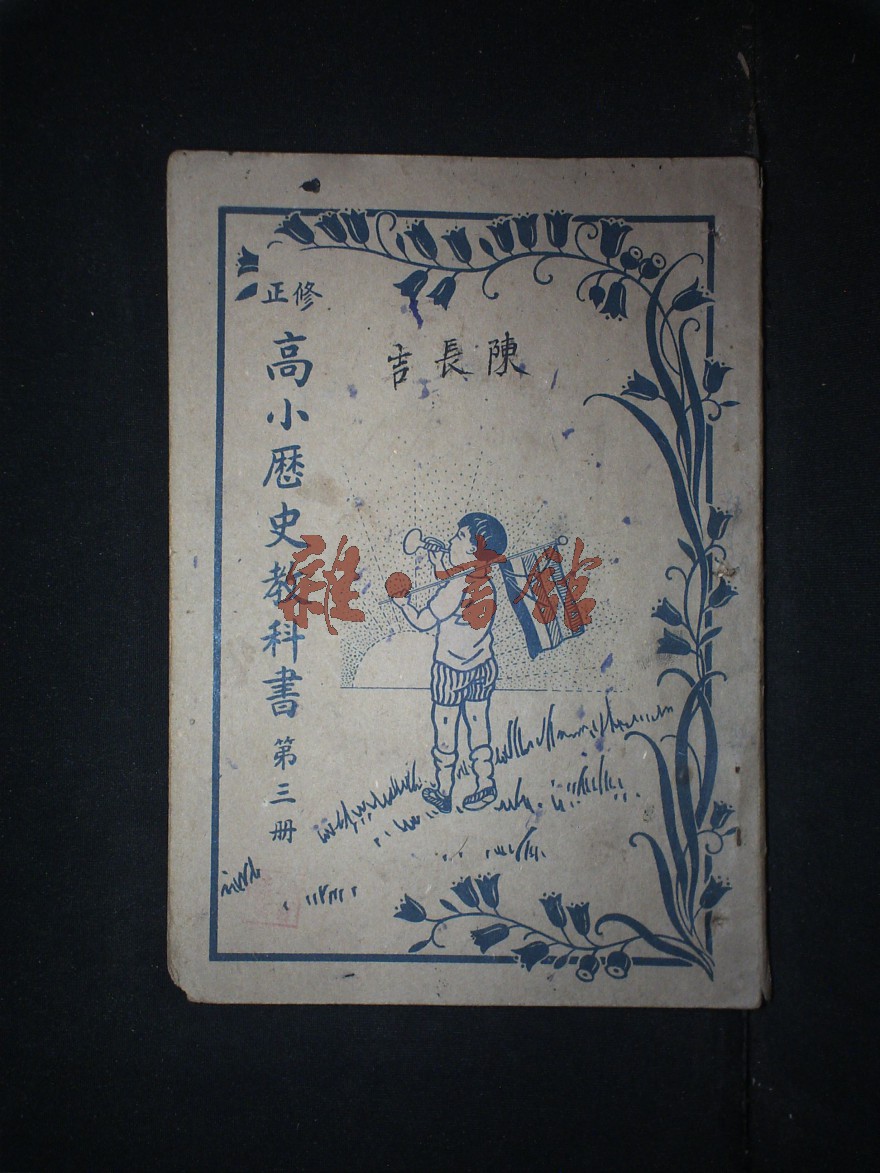 修正
高小歷史教科書 第三册
陳長吉
雜·書館